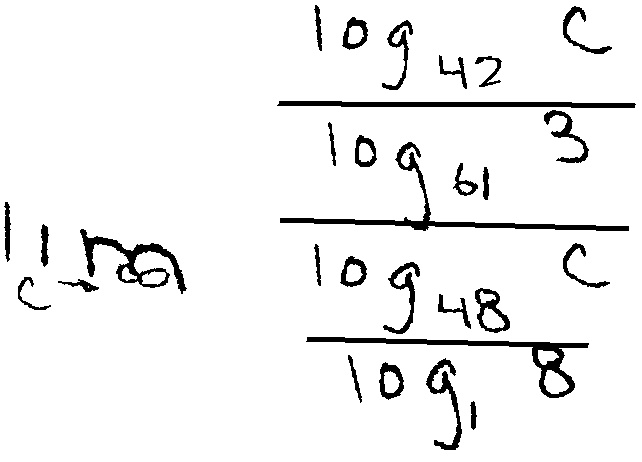 \lim_{c \to \infty} \frac{\frac{\log_{42} c}{\log_{61} 3}}{\frac{\log_{48} c}{\log_{1} 8}}